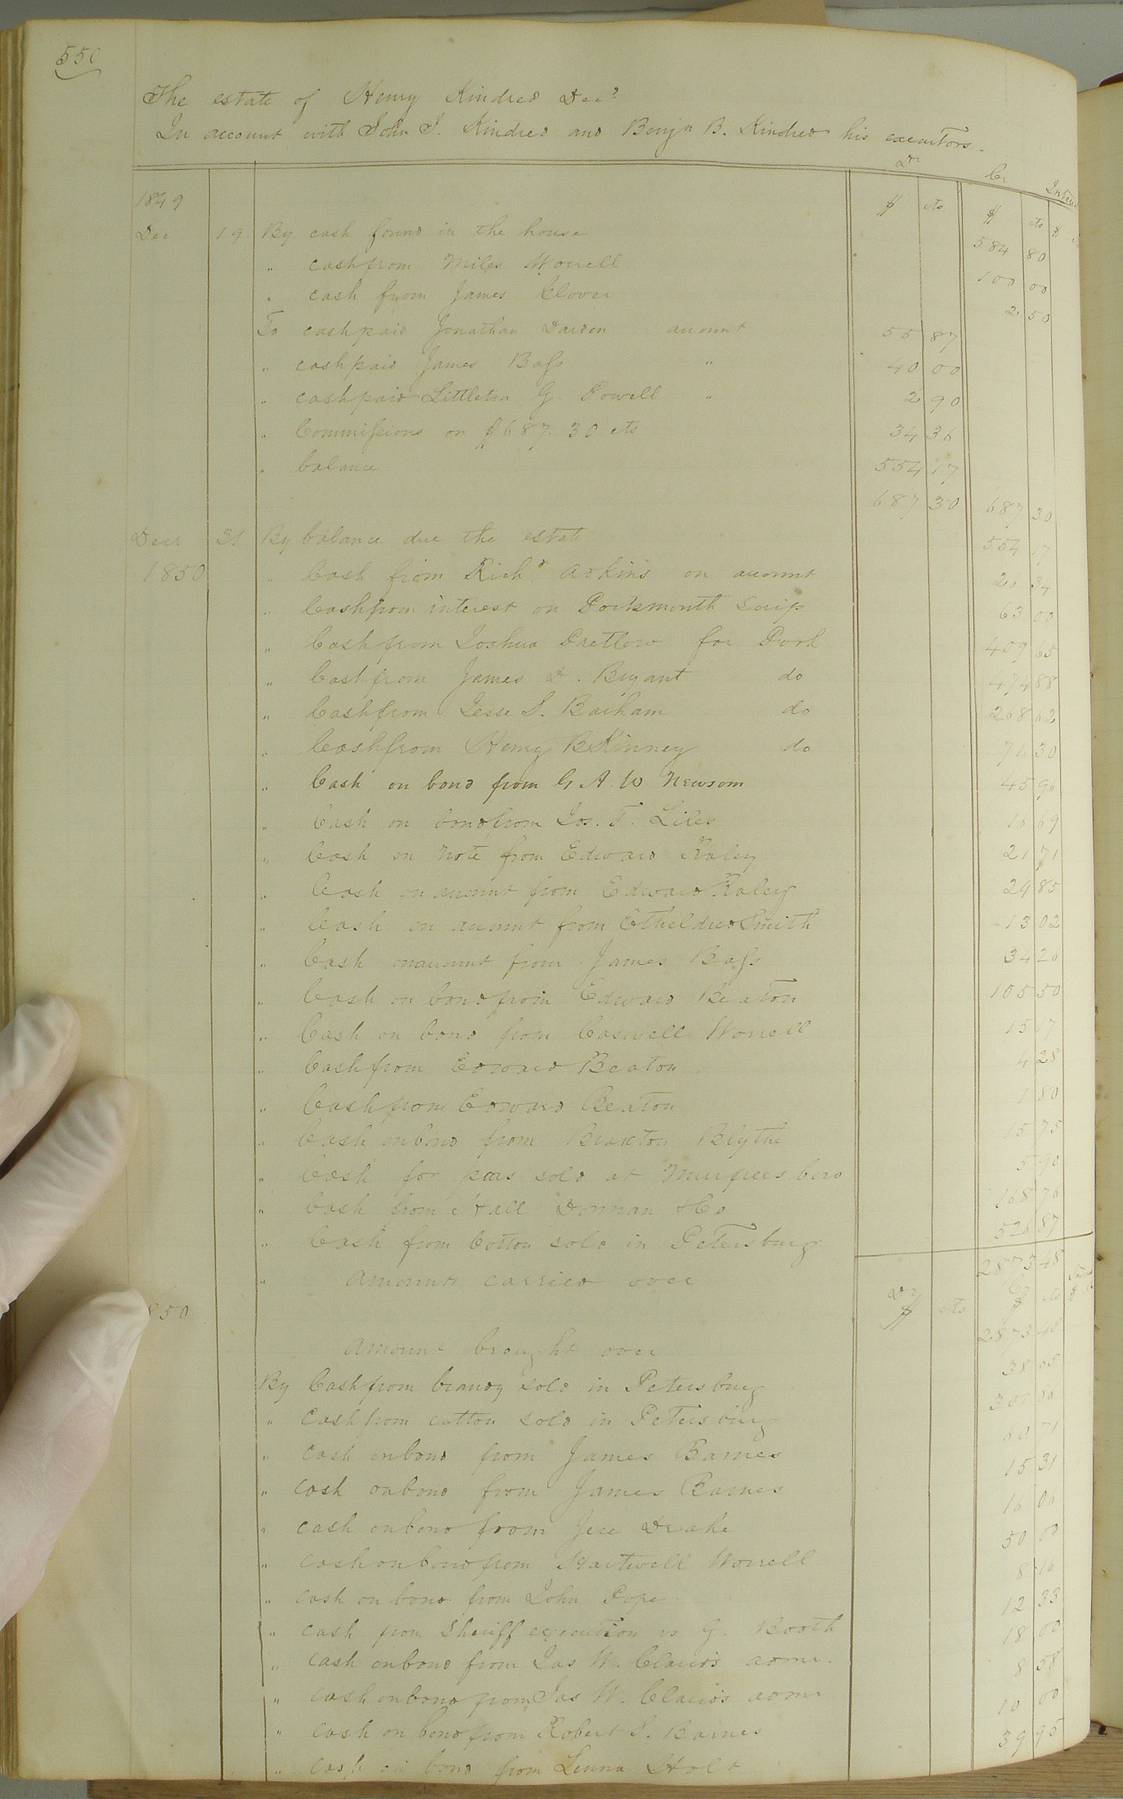 550
The estate of Henry Kindred Decd
In account with John J. Kindred and Benjn B. Kindred his executors.
Dr Cr
1849 $ cts $ cts
Dec 19 By cash found in the house 584 80
" cash from Miles Worrell 100 00
" cash from James Clover 2 50
To cash paid Jonathan Darden account 55 87
" cash paid James Bass " 40 00
" cash paid Littleton G. Powell " 2 90
" Commissions on $687.30 cts 34 36
" balance 554 17
687 30 687 30
Decr 31 By balance due the estate 554 17
1850 " Cash from Richd Adkins on account 20 34
" Cash from interest on Portsmouth Scrip 63 00
" Cash from Joshua Pretlow for Pork 409 65
" Cash from James D. Bryant do 474 88
" Cash from Jesse S. Barham do 268 62
" Cash from Henry B Kinney do 76 30
" Cash on bond from G A W Newsom 45 96
" Cash on bond from Jos. T. Liles 16 69
" Cash on note from Edward Raley 21 71
" Cash on account from Edward Raley 29 85
" Cash on account from Etheldred Smith 13 02
" Cash on account from James Bass 34 26
" Cash on bond from Edward Beaton 105 50
" Cash on bond from Caswell Worrell 15 17
" Cash from Edward Beaton 4 28
" Cash from Edward Beaton 1 80
" Cash on bond from Braxton Blythe 15 75
" Cash for peas sold at Murfreesboro 5 90
" Cash from Hall Dorman & Co 168 76
" Cash from Cotton sold in Petersburg 528 87
" Amount carried over 2873 48
850 Dr $ cts $ cts
Amount brought over 2873 48
By Cash from brandy sold in Petersburg 38 05
" Cash from cotton sold in Petersburg
" cash on bond from James Barnes 60 71
" cash on bond from James Barnes 15 31
" cash on bond from Jese Drake 16 06
" cash on bond from Hartwell Worrell 50 00
" cash on bond from John Pope 8 16
" cash from Sheriff execution vs G. Booth 12 33
" cash on bond from Jas W. Claud's admr. 18 00
" cash on bond from Jas W. Claud's admr 8 58
" cash on bond from Robert S. Barnes 10 00
" cash on bond from Lenna Holt 39 95